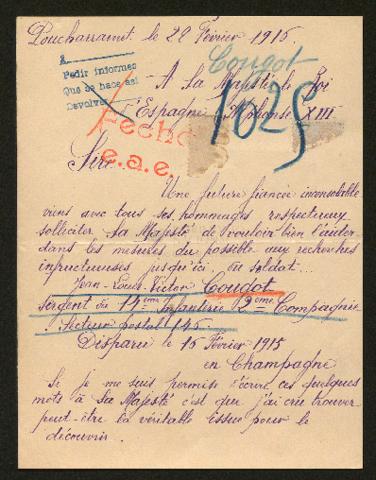 Poucharramet le 22 Février 1916.
Cougot
A
Pedir informes
Que se hace así
Devolver
A Sa Majesté le Roi
d'Espagne Alphonse XIII
1025
Fecho
e.a.e.
Sire
Une future fiancée inconsolable
viens avec tous ses hommages respectueux
solliciter Sa Majesté de vouloir bien l'aider
dans les mesures du possible aux recherches
infructueuses jusqu'ici du soldat...
Jean-Louis-Victor Cougot
Sergent du 14ème Infanterie 2ème Compagnie
Secteur postal 145.
Disparu le 15 Février 1915
en Champagne
Si je me suis permise d'écrire ces quelques
mots à Sa Majesté c'est que j'ai cru trouver
peut-être la véritable issue pour le
découvrir.